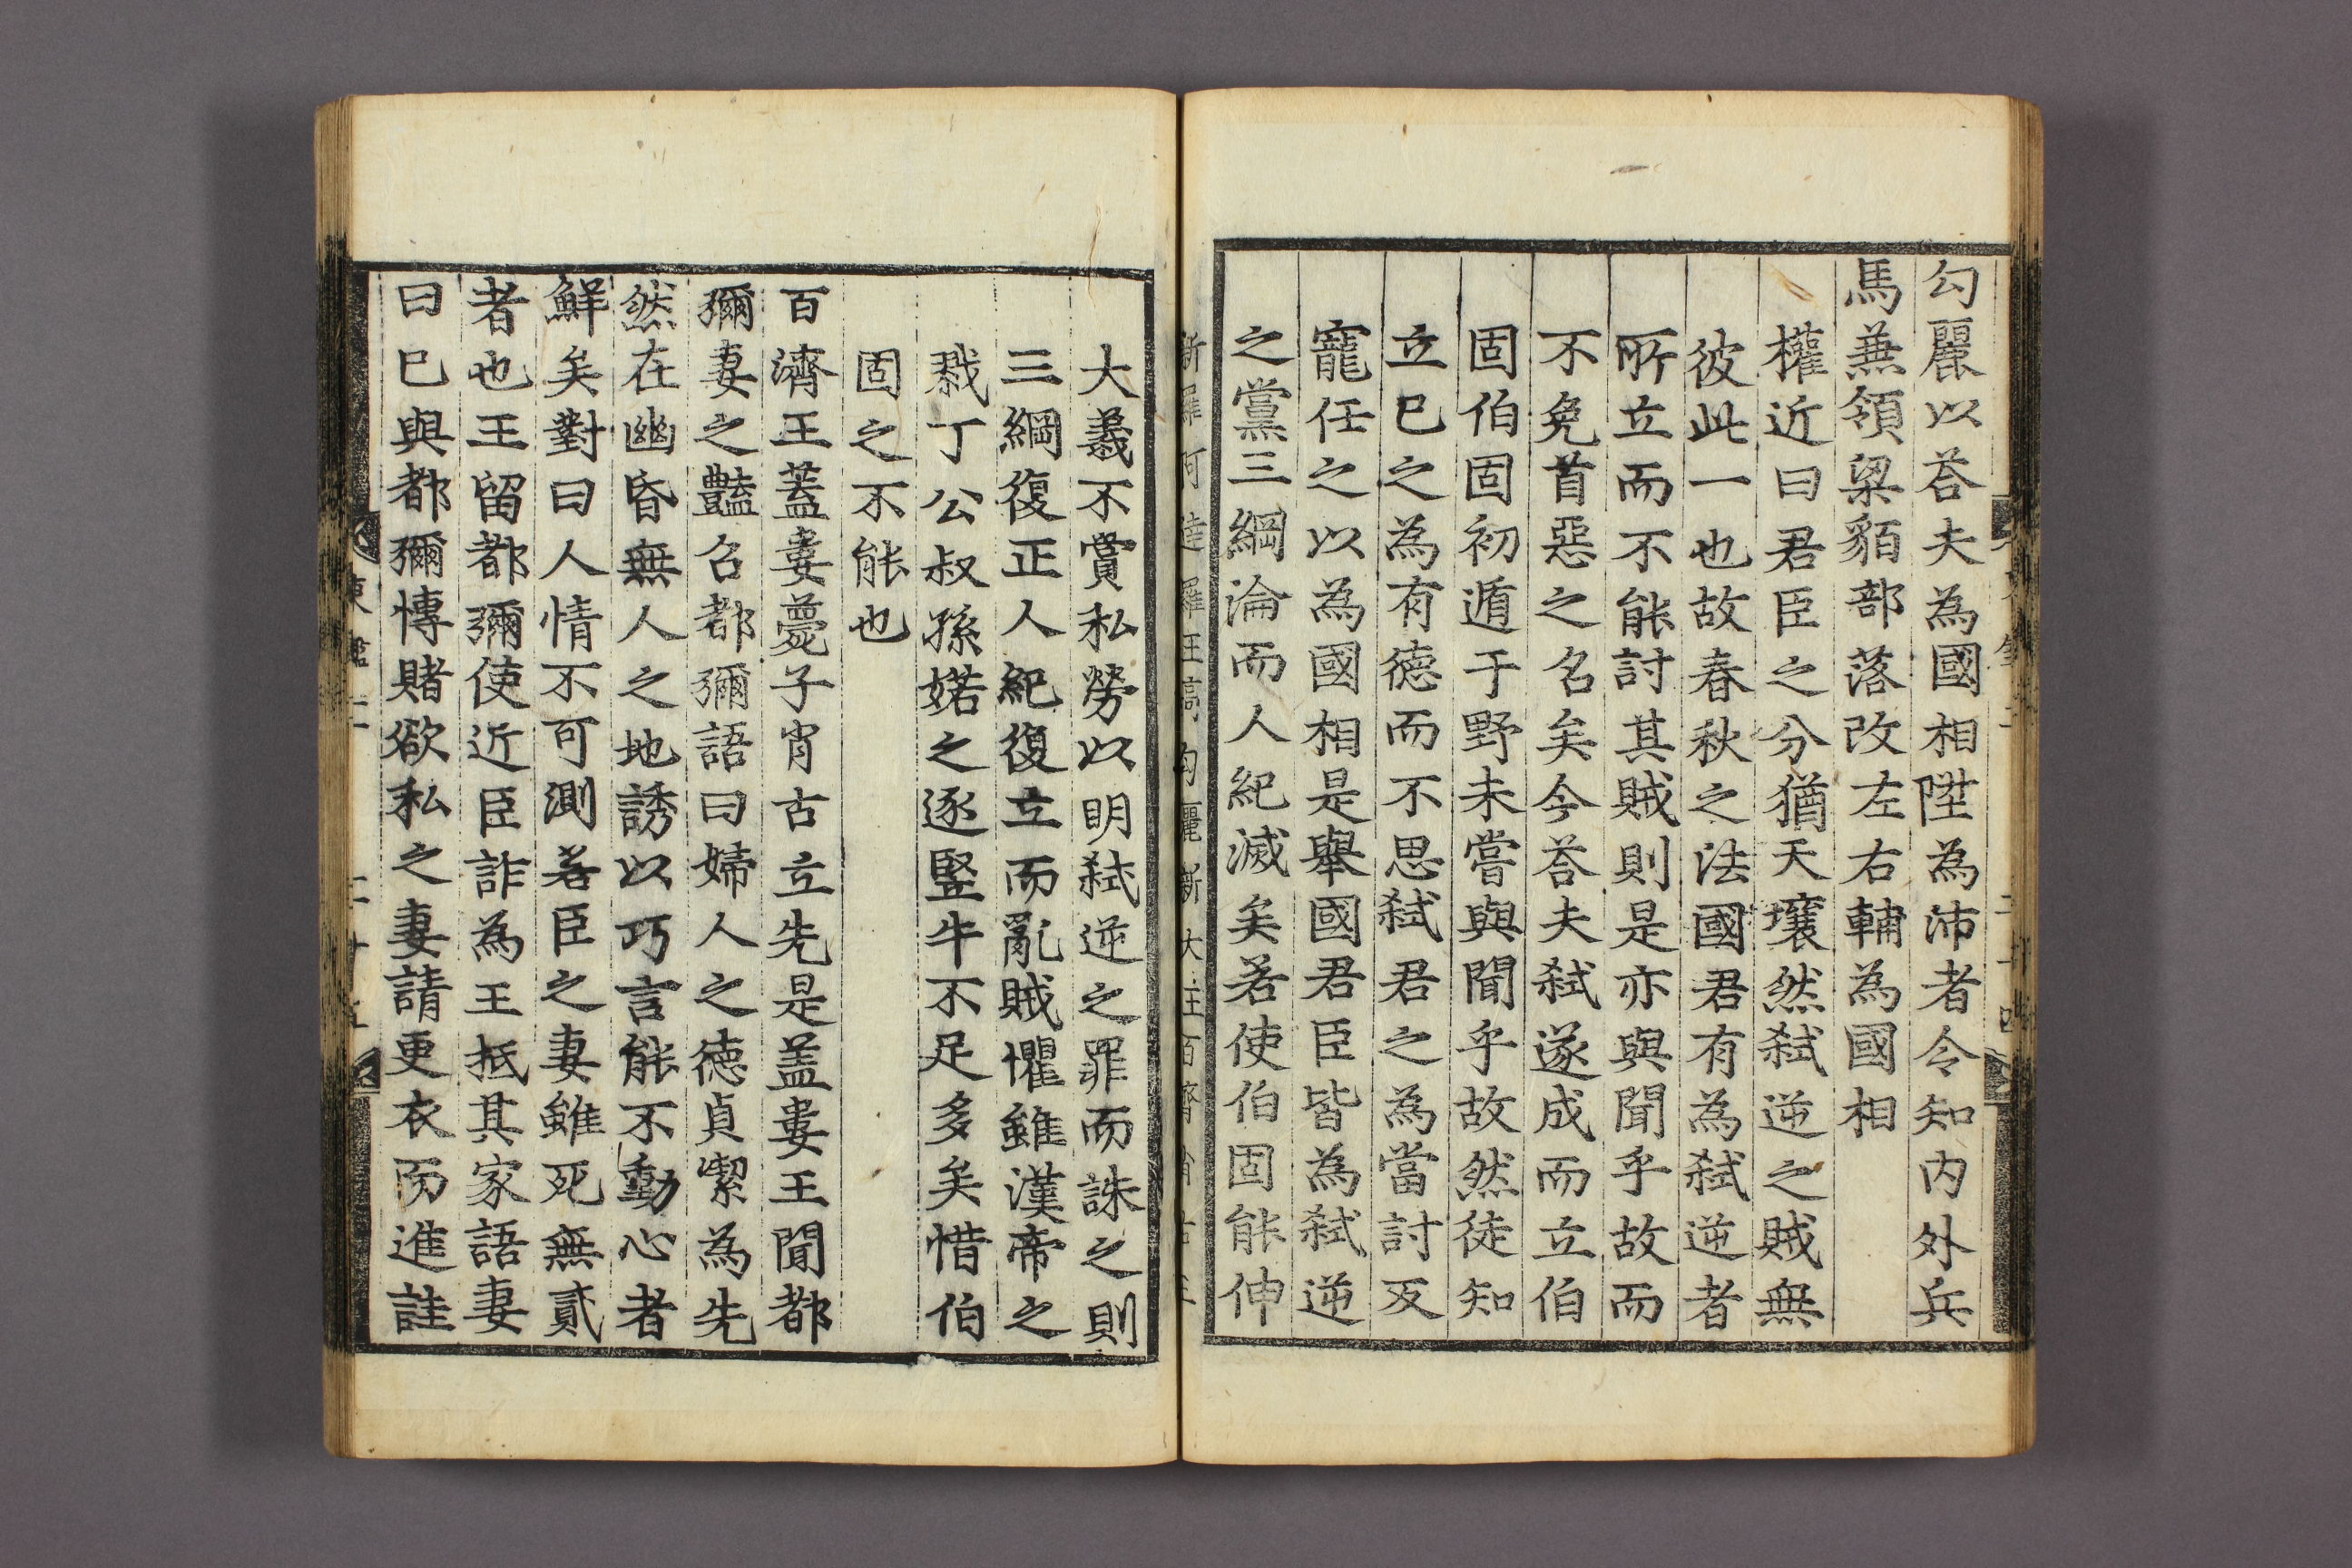 勾麗以荅夫為國相陞為沛者令知内外兵
馬兼領梁貊部落改左右輔為國相
權近曰君臣之分猶天壤然弑逆之賊無
彼此一也故春秋之法國君有為弑逆者
所立而不能討其賊則是亦與聞乎故而
不免首惡之名矣今荅夫弑遂成而立伯
固伯固初遁于野未嘗與聞乎故然徒知
立已之為有德而不思弑君之為當討反
寵任之以為國相是舉國君臣皆為弑逆
之黨三綱淪而人紀滅矣若使伯固能伸
大義不賞私勞以明弑逆之罪而誅之則
三綱復正人紀復立而亂賊懼雖漢帝之
戮丁公叔孫婼之逐竪牛不足多矣惜伯
固之不能也
百濟王蓋婁薨子肖古立先是盖婁王聞都
彌妻之豔召都彌語曰婦人之德貞潔為先
然在幽昏無人之地誘以巧言能不動心者
鮮矣對曰人情不可測若臣之妻雖死無貳
者也王留都彌使近臣詐為王抵其家語妻
曰已與都彌慱賭欲私之妻請更衣而進詿